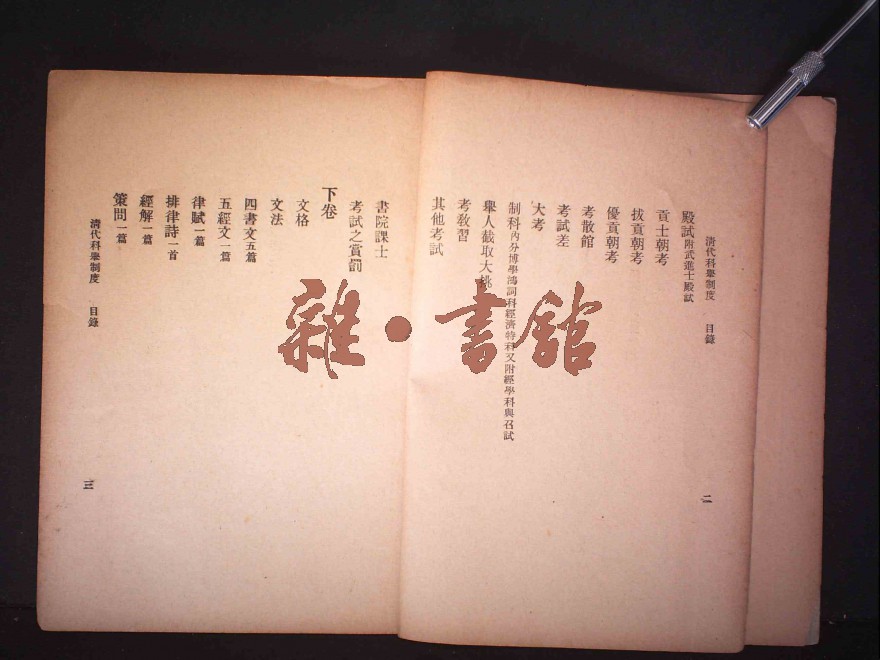 清代科舉制度 目錄
殿試附武進士殿試
貢士朝考
拔貢朝考
優貢朝考
考散館
考試差
大考
制科內分博學鴻詞科經濟特科又附經學科與召試
舉人截取大挑
考教習
其他考試
二
書院課士
考試之賞罰
下卷
文格
文法
四書文五篇
五經文一篇
律賦一篇
排律詩一首
經解一篇
策問一篇
清代科舉制度 目錄
三
雜·書館